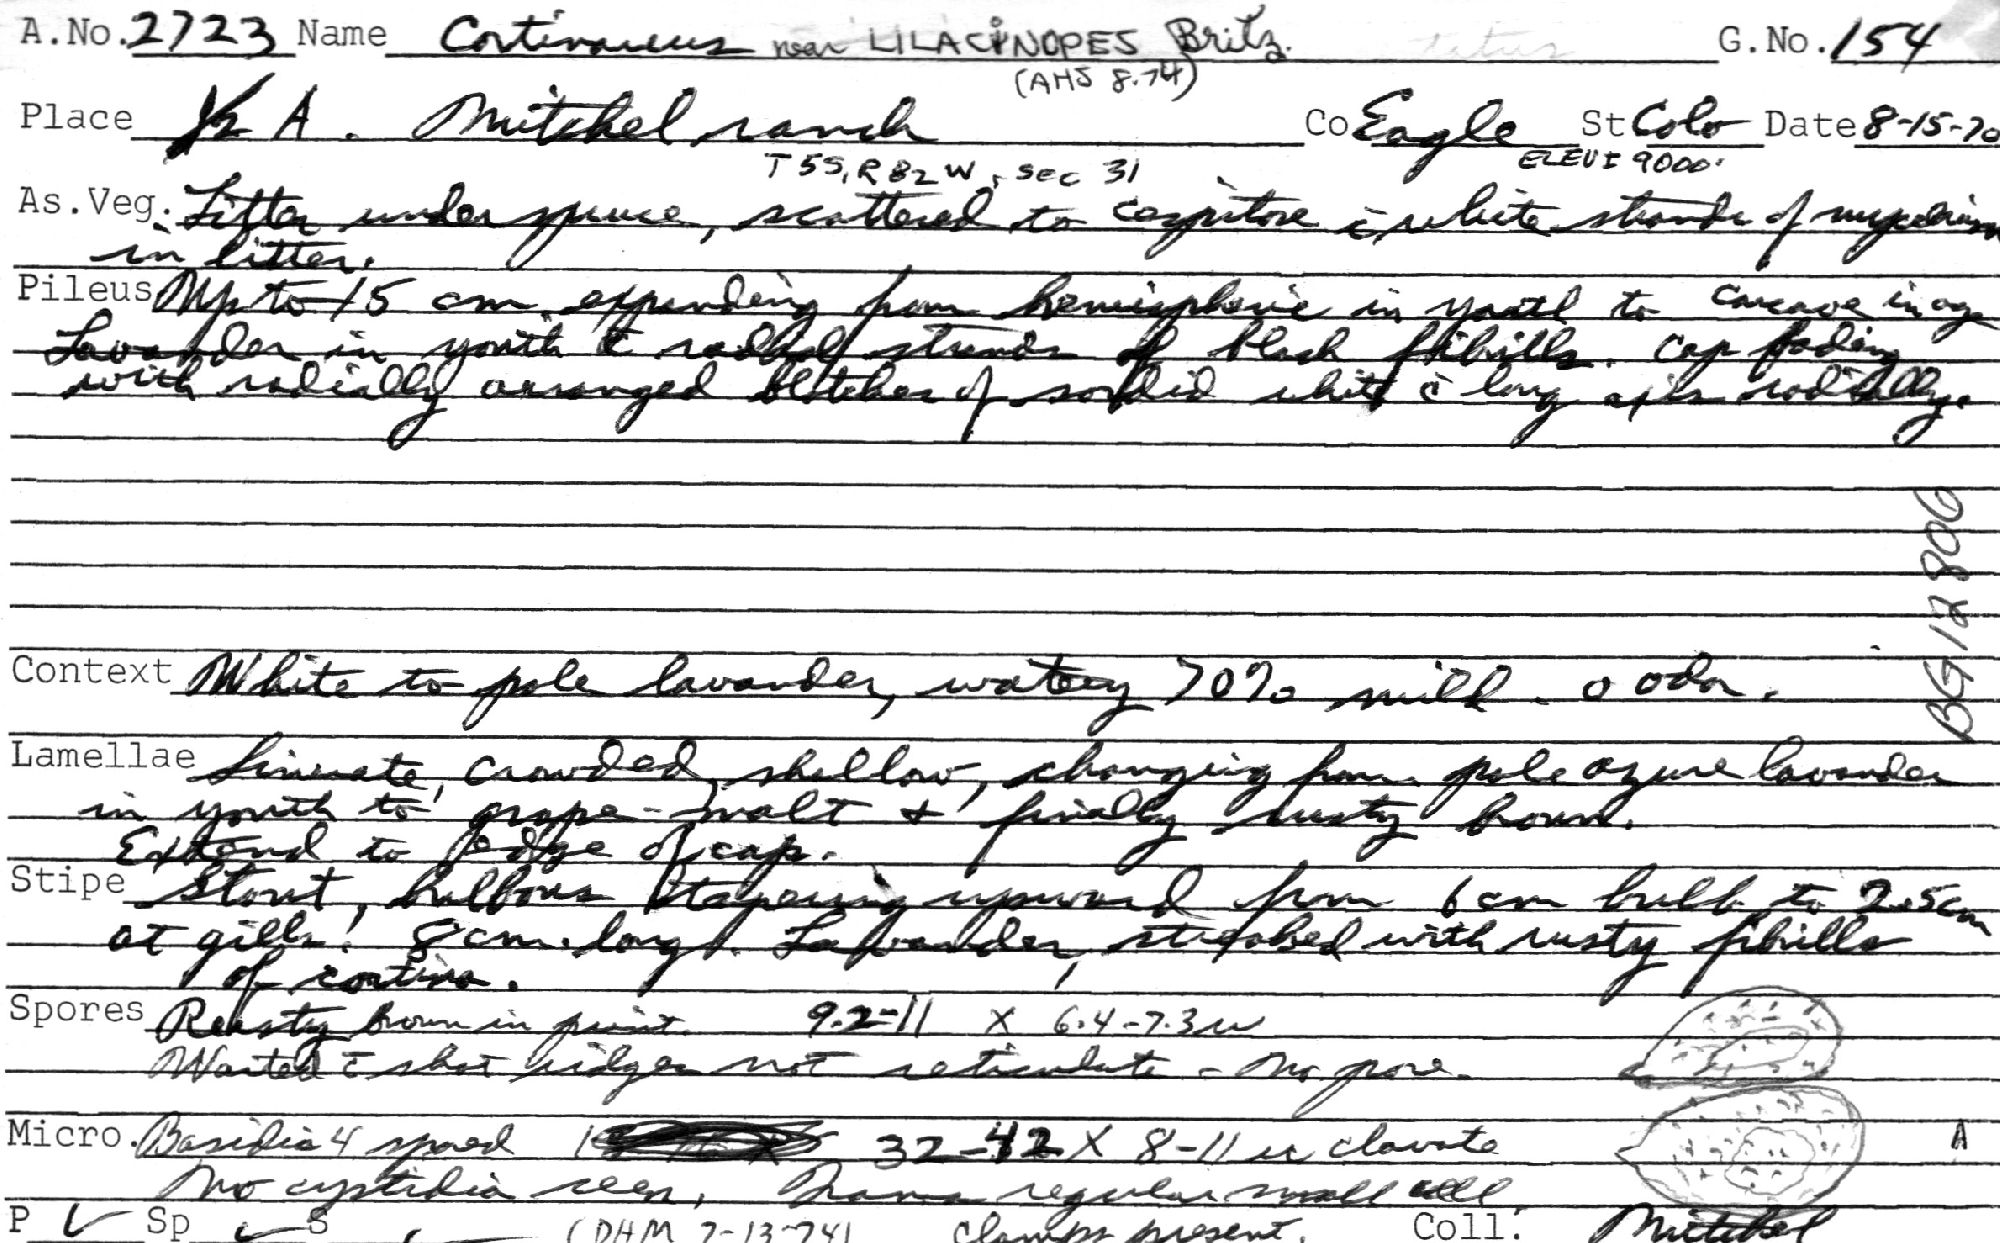 A.No. 2723 Name Cortinarius near LILACINOPES Britz. G.No. 154
(AHS 8.74)
Place A. Mitchel ranch Co Eagle St Colo Date 8-15-70
T 5S, R 82 W, Sec 31 ELEV: 9000'
As.Veg. Litter under spruce, scattered to cespitose c̄ white strands of mycelium
in litter.
Pileus Up to 15 cm expanding from hemispheric in youth to concave in age
Lavander in youth c̄ radial strands of black fibrills. Cap fading
with radially arranged blotches of sordid white c̄ long axis radially.
BG 12806
Context White to pale lavander, watery 70% mild. o odor.
Lamellae Sinuate, crowded, shallow, changing from pale azure lavander
in youth to grape-malt + finally rusty brown.
Extend to edge of cap.
Stipe Stout, bulbous tapering upward from 6 cm bulb to 2.5cm
at gills. 8 cm. long. Lavander, streaked with rusty fibrills
of cortina.
Spores Rusty brown in print. 9.2-11 X 6.4-7.3 u
Warted c̄ short ridges not reticulate - no pore.
Micro. Basidia 4 spored 32-42 X 8-11 u clavate A
No cystidia seen, Trama regular small cell
P ✓ Sp ✓ S (DHM 7-13-74) Clamps present. Coll: Mitchel